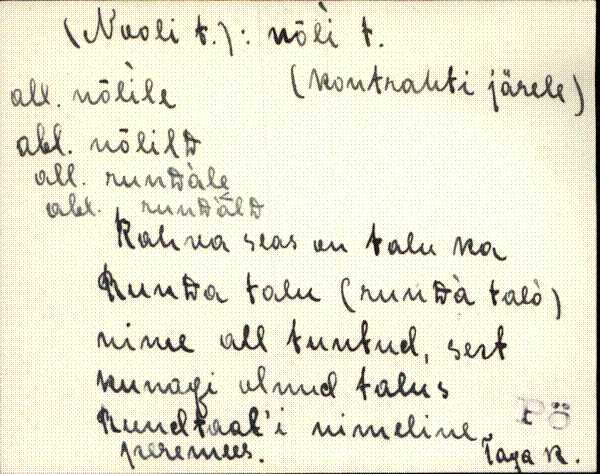 (Nooli t.): nõlì t.
(kontrahti järele)
all. nõlìle
abl. nõlilD
all. runDàle
abl. runDàlD
Rahva seas on talu ka
RunDa talu (runDà talò)
nime all tuntud, sest
kunagi olnud talus
Rundtaal'i nimeline
peremees.
Pö
Taga k.